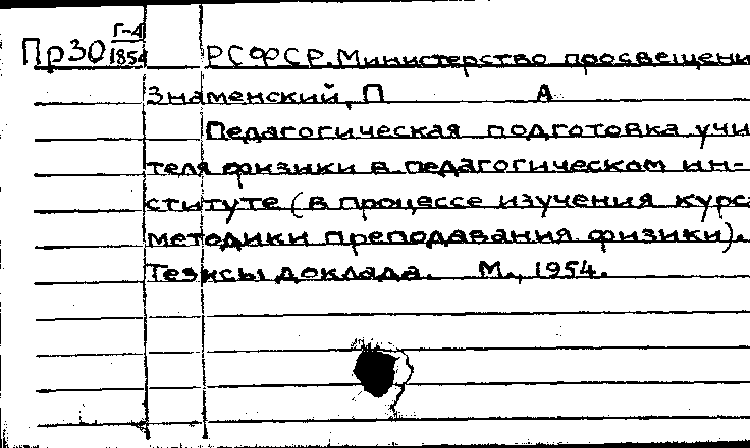 Пр30 Г-4
1854 РСФСР. Министерство просвещени
Знаменский, П А
Педагогическая подготовка учи
теля физики в педагогическом ин-
ституте (в процессе изучения курса
методики преподавания физики).
Тезисы доклада. М., 1954.